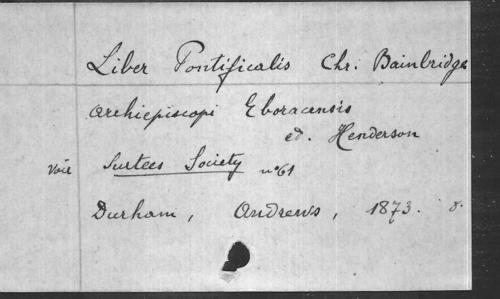 Liber Pontificalis Chr. Bainbridge
archiepiscopi Eboracensis
ed. Henderson
voir Surtees Society nº61
Durham, Andrews, 1873. 8.